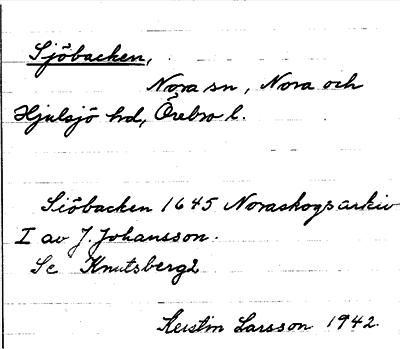 Sjöbacken,
Nora sn, Nora och
Hjulsjö hd, Örebro l.
Siöbacken 1645 Noraskogs arkiv
I av J. Johansson.
Se Knutsberg2
Kerstin Larsson 1942.